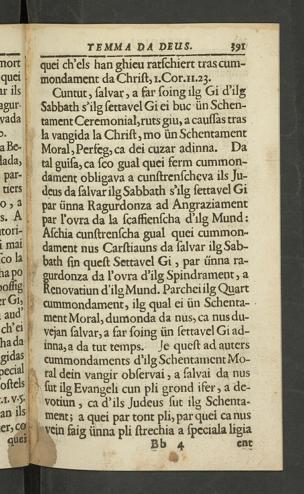 TEMMA DA DEUS. 391
mort
quei
ar ils
agur-
vada
o.
a Be-
lada,
par-
tiers
o, a
s. A
ntori-
i mai
sco la
ha po
possig
er Gi,
aud'
ch'ei
ha da
gidas
pecial
ostels
r.1.v.5.
an ils
er, co
quei
quei ch'els han ghieu ratschiert tras cum-
mondament da Christ, 1. Cor. 11. 23.
Cuntut, salvar, a far soing ilg Gi d'ilg
Sabbath s'ilg settavel Gi ei buc ün Schen-
tament Ceremonial, ruts giu, a caussas tras
la vangida la Christ, mo ün Schentament
Moral, Perseg, ca dei cuzar adinna. Da
tal guisa, ca sco gual quei ferm cummon-
dament obligava a cunstrenscheva ils Ju-
deus da salvar ilg Sabbath s'ilg settavel Gi
par ünna Ragurdonza ad Angraziament
par l'ovra da la scaffienscha d'ilg Mund:
Aschia cunstrenscha gual quei cummon-
dament nus Carstiauns da salvar ilg Sab-
bath sin quest Settavel Gi, par ünna ra-
gurdonza da l'ovra d'ilg Spindrament, a
Renovatiun d'ilg Mund. Parchei ilg Quart
cummondament, ilg qual ei ün Schenta-
ment Moral, dumonda da nus, ca nus du-
vejan salvar, a far soing ün settavel Gi ad-
inna, a da tut temps. Je quest ad auters
cummondaments d'ilg Schentament Mo-
ral dein vangir observai, a salvai da nus
sut ilg Evangeli cun pli grond ifer, a de-
votiun, ca d'ils Judeus sut ilg Schenta-
ment; a quei par tont pli, par quei ca nus
vein faig ünna pli strechia a speciala ligia
Bb 4 ent